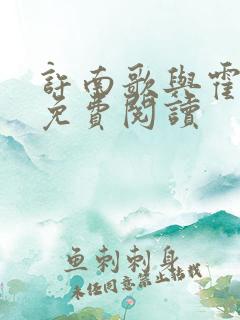 許南歌與霍
免費閱讀
鱼刺刺身
未经同意禁止转载